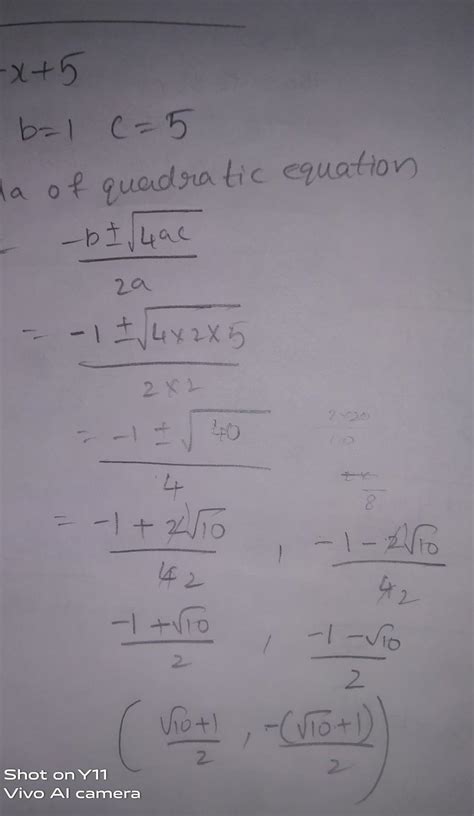 -x+5
b=1 c=5
la of quadratic equation
-b±√4ac
2a
= -1±√4×2×5
2×2
= -1±√40
4
= -1+2√10 , -1-2√10
42 42
-1+√10 , -1-√10
2 2
(√10+1 , -(√10+1))
2 2
8
Shot on Y11
Vivo AI camera